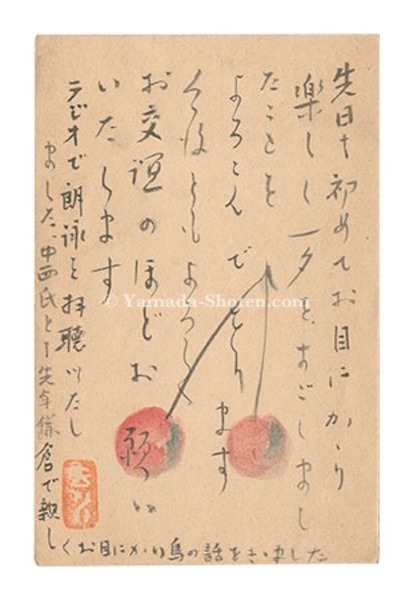 先日は初めてお目にかゝり
楽しい一夕をすごしまし
たことを
よろこんでをります
今後ともよろしく
お交誼のほどお願い
いたします
ラジオで朗詠を拝聴いたし
ました、中西氏とは先年鎌倉で親し
くお目にかゝり鳥の話をききました
© Yamada-Shoten.com